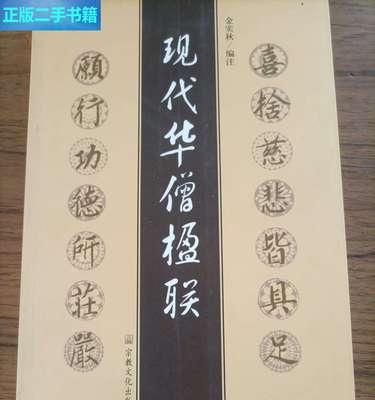 正版二手书籍
金实秋/编注
现代华僧楹联
喜捨慈悲皆具足
願行功德所莊嚴
宗教文化出版